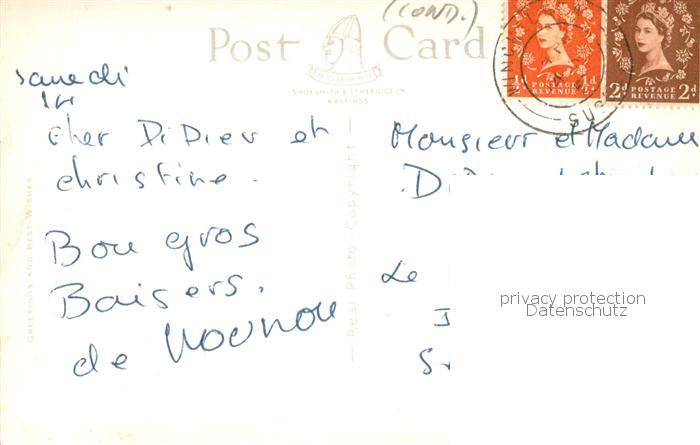 (COND.)
Post Card
NORMAN
SHOESMITH & ETHERIDGE LTD
HASTINGS
½d ½d
POSTAGE
REVENUE
2d 2d
POSTAGE
REVENUE
SUS
samedi
cher DiDier et
christine.
Bon gros
Baisers.
de NOUNOU
GREETINGS AND BEST WISHES
Real Photo Copyright
Monsieur et Madame
Le
privacy protection
Datenschutz